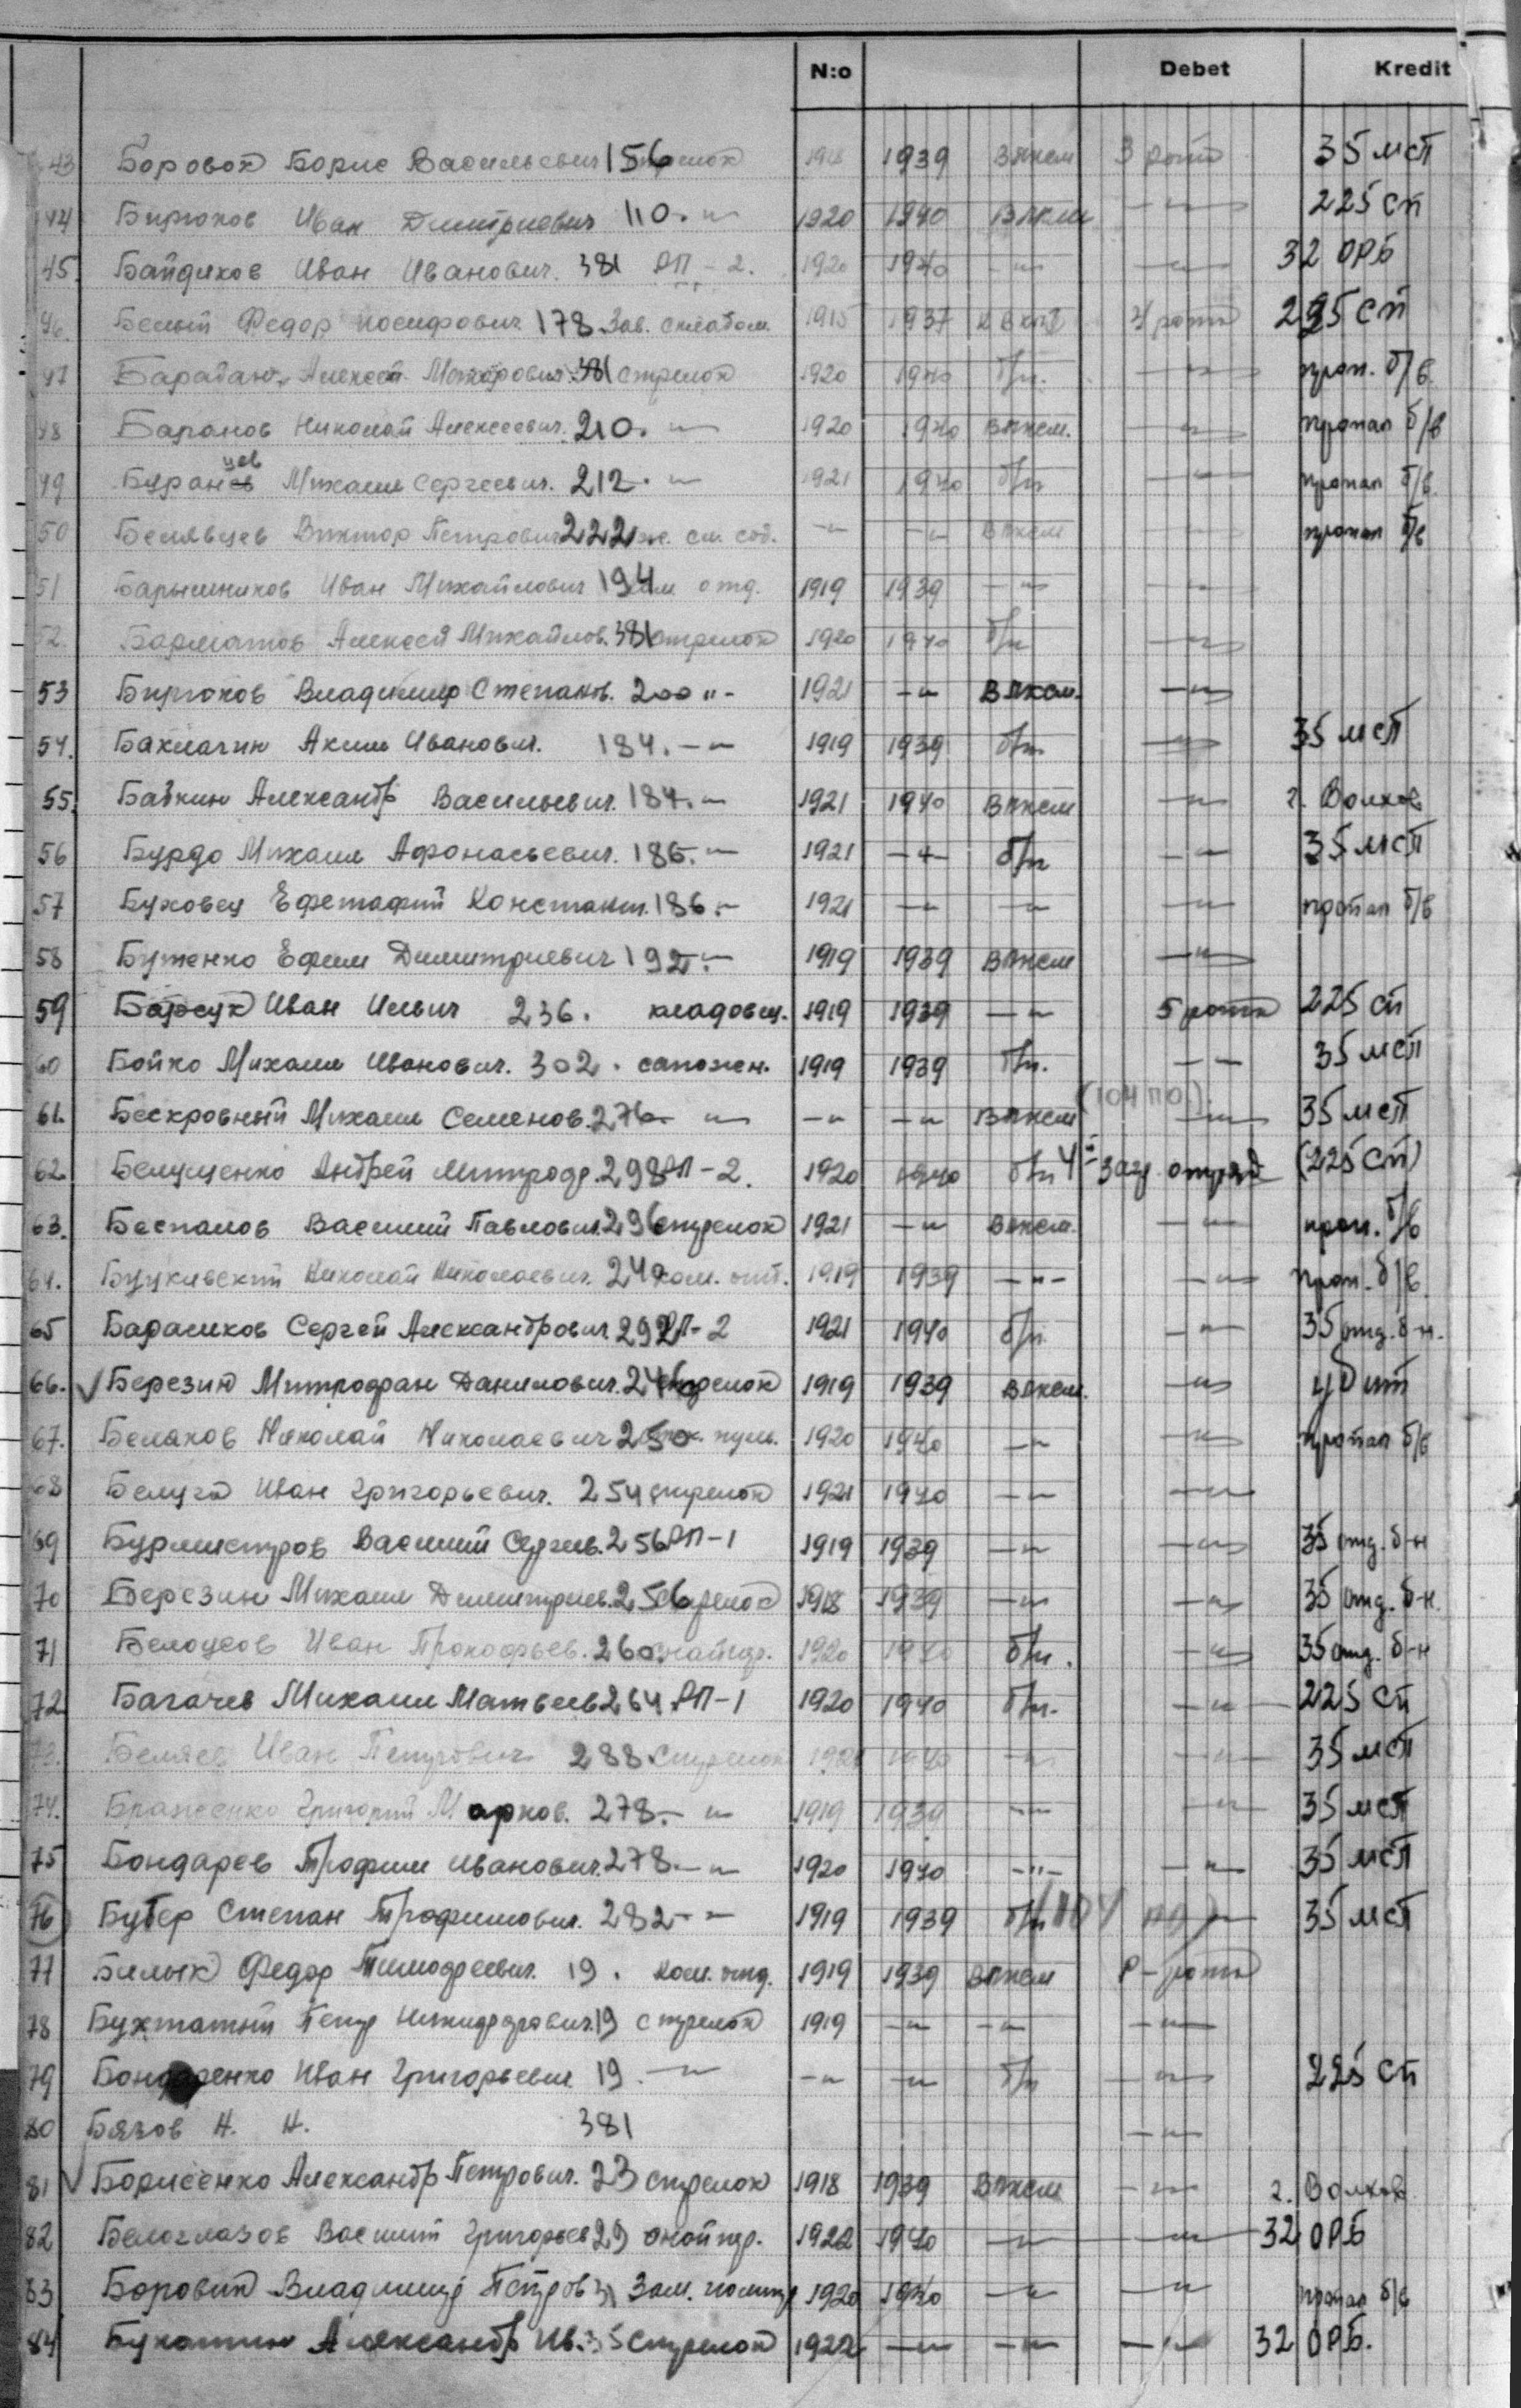 N:o Debet Kredit
43 Боровой Борис Васильевич 156 стрелок 1918 1939 Влксм 3 рота 35 мсп
44 Бирюков Иван Димитриевич 110. -"- 1920 1940 Влксм -"- 225 сп
45. Байдиков Иван Иванович. 381 РП-2. 1920 1940 -"- -"- 32 ОРБ
46. Белый Федор Иосифович 178 Зав. складом. 1915 1937 4 рота 225 сп
47 Алексей 381 стрелок 1920 1940 б/п. -"- проп. б/в.
48 Баранов Николай Алексеевич. 210. -"- 1920 1940 Влксм. -"- пропал б/в
49 Михаил Сергеевич. 212. -"- 1921 1940 б/п -"- пропал б/в.
50 Белявцев Виктор Петрович 222 -"- -"- Влксм -"- пропал б/в
51 Барышников Иван Михайлович 194 ком отд. 1919 1939 -"- -"-
52. Барматов Алексей Михайлов. 381 стрелок 1920 1940 б/п -"-
53 Бирюков Владимир Степанов. 200 -"- 1921 -"- Влксм. -"-
54. Баклагин Аким Иванович. 184. -"- 1919 1939 б/п. -"- 35 мсп
55. Бабкин Александр Васильевич. 184. -"- 1921 1940 Влксм -"- г. Волхов
56 Бурдо Михаил Афонасьевич. 186. -"- 1921 -"- б/п -"- 35 мсп
57 Буховец Ефстафий Констант. 186. -"- 1921 -"- -"- -"- пропал б/в
58 Бутенко Ефим Димитриевич 192. -"- 1919 1939 Влксм -"-
59 Барсук Иван Ильич 236. кладовщ. 1919 1939 -"- 5 рота 225 сп
60 Бойко Михаил Иванович. 302. сапожн. 1919 1939 б/п. -"- 35 мсп
61. Бескровный Михаил Семенов. 276. -"- -"- -"- Влксм (104 ПО). -"- 35 мсп
62. Белущенко Андрей Митроф. 298 РП-2. 1920 1940 б/п 4й заг. отряд (225 сп)
63. Беспалов Василий Павлович. 296 стрелок 1921 -"- Влксм. -"- проп. б/в
64. Николай Николаевич. 1919 1939 -"- -"- проп. б/в
65 Сергей Александрович. 292 РП-2 1921 1940 б/п. -"- 35 отд. б-н.
66. ✓ Березин Митрофан Данилович. 246 стрелок 1919 1939 Влксм. -"- убит
67. Белаков Николай Николаевич 250 пуль. 1920 1940 -"- -"- пропал б/в
68 Белуга Иван Григорьевич. 254 стрелок 1921 1940 -"- -"-
69 Бурмистров Василий Сергеев. 256 РП-1 1919 1939 -"- -"- 35 отд. б-н
70 Березин Михаил Димитриев. 256 стрелок 1918 1939 -"- -"- 35 отд. б-н.
71 Белоусов Иван Прокофьев. 260 снайпер. 1920 1940 б/п. -"- 35 отд. б-н
72 Багачев Михаил Матвеев 264 РП-1 1920 1940 б/п. -"- 225 сп
73. Беляев Иван Петрович 288. Стрелок 1940 -"- -"- 35 мсп
74. Браженко Григорий Марков. 278. -"- 1919 1939 -"- -"- 35 мсп
75 Бондарев Трофим Иванович. 278. -"- 1920 1940 -"- -"- 35 мсп
76 Бутер Степан Трофимович. 282 -"- 1919 1939 б/п (104 ПО) -"- 35 мсп
77 Билык Федор Тимофеевич. 19. Ком. отд. 1919 1939 Влксм Р-рота
78 Бухтатый Петр Никифорович. 19 стрелок 1919 -"- -"- -"-
79 Бондаренко Иван Григорьевич 19. -"- -"- -"- б/п -"- 225 сп
80 Бязов Н. Н. 381 -"-
81 ✓ Борисенко Александр Петрович. 23 стрелок 1918 1939 Влксм -"- г. Волхов.
82 Белоглазов Василий Григорьев 29 снайпер. 1922 1940 -"- -"- 32 ОРБ
83 Боровик Владимир Петров 31 Зам. политр 1920 1940 -"- -"- пропал б/в
84 Александр Ив. 35 Стрелок 1922 -"- -"- -"- 32 ОРБ.